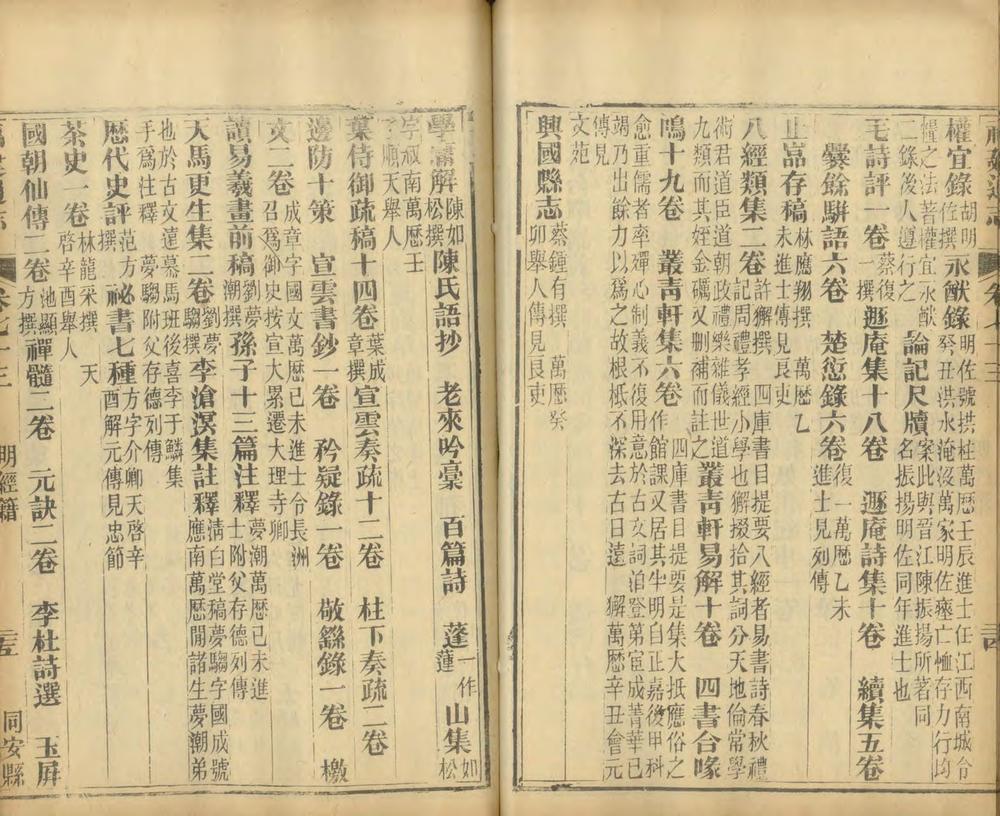 福建通志 卷七十三 三古
權宜錄胡明佐撰永猷錄明佐號拱柱萬厯壬辰進士任江西南城令癸丑洪水淹沒萬家明佐瘞亡恤存力行均
之法菩權宜永猷二錄後人遵行之 論記尺牘案此與晉江陳振揚所著同名振揚明佐同年進士也
毛詩評一卷蔡復一撰遯庵集十八卷 遯庵詩集十卷 續集五卷
爨餘駢語六卷 楚愆錄六卷復一萬厯乙未進士見列傳
止嵓存稿林應翔撰萬厯乙未進士傳見良吏
八經類集二卷許獬撰四庫書目提要八經者易書詩春秋禮記周禮孝經小學也獬掇拾其詞分天地倫常學術君道臣道朝政禮樂雜儀世道
九類而其姪金礪又刪補而註之叢靑軒易解十卷 四書合喙
鳴十九卷 叢靑軒集六卷四庫書目提要是集大抵應俗之作館課又居其半明自正嘉後甲科
愈重儒者率殫心制義不復用意於古文詞洎登第宦成菁華已竭乃出餘力以爲之故根柢不深去古日遠 獬萬厯辛丑會元
傳見文苑
興國縣志蔡鍾有撰萬厯癸卯舉人傳見良吏
學庸解陳如松撰陳氏語抄 老來吟毫 百篇詩 蓬一作蓮山集如松
字叔南萬厯壬午順天舉人
葉侍御疏稿十四卷葉成章撰宣雲奏疏十二卷 柱下奏疏二卷
邊防十策 宣雲書鈔一卷 矜疑錄一卷 敬繇錄一卷 檄
文二卷成章字國文萬厯己未進士令長洲召爲御史按宣大累遷大理寺卿
讀易羲畫前稿劉夢潮撰孫子十三篇注釋夢潮萬厯己未進士附父存德列傳
天馬更生集二卷劉夢騶撰李滄溟集註釋淸白堂稿夢騶字國成號應南萬厯閒諸生夢潮弟
也於古文遠慕馬班後喜李于鱗集手爲注釋 夢騶附父存德列傳
厯代史評范方撰祕書七種方字介卿天啓辛酉解元傳見忠節
茶史一卷林龍采撰天啓辛酉舉人
國朝仙傳二卷池顯方撰禪髓二卷 元訣二卷 李杜詩選 玉屛
卷七十三 明經籍 三五 同安縣